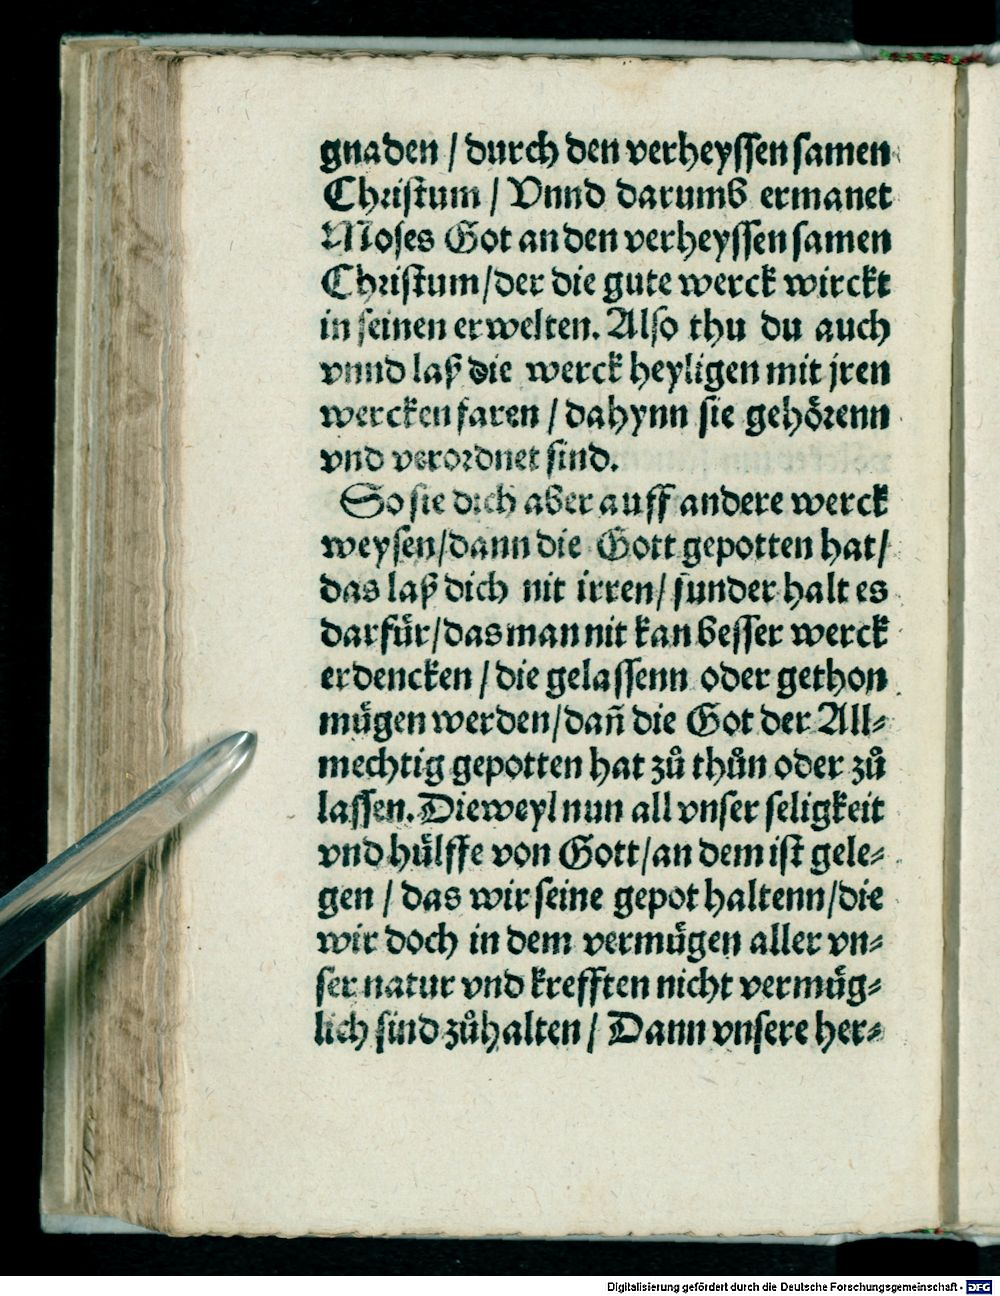 gnaden / durch den verheyssen samen
Christum / Vnnd darumb ermanet
Moses Got an den verheyssen samen
Christum/der die gute werck wirckt
in seinen erwelten. Also thu du auch
vnnd laß die werck heyligen mit jren
wercken faren / dahynn sie gehörenn
vnd verordnet sind.
So sie dich aber auff andere werck
weysen/dann die Gott gepotten hat/
das laß dich nit irren/ sunder halt es
darfür/das man nit kan besser werck
erdencken / die gelassenn oder gethon
mügen werden/dañ die Got der All⸗
mechtig gepotten hat zů thůn oder zů
lassen. Dieweyl nun all vnser seligkeit
vnd hülffe von Gott/an dem ist gele⸗
gen / das wir seine gepot haltenn/die
wir doch in dem vermügen aller vn⸗
ser natur vnd krefften nicht vermüg⸗
lich sind zůhalten / Dann vnsere her⸗
Digitalisierung gefördert durch die Deutsche Forschungsgemeinschaft - DFG